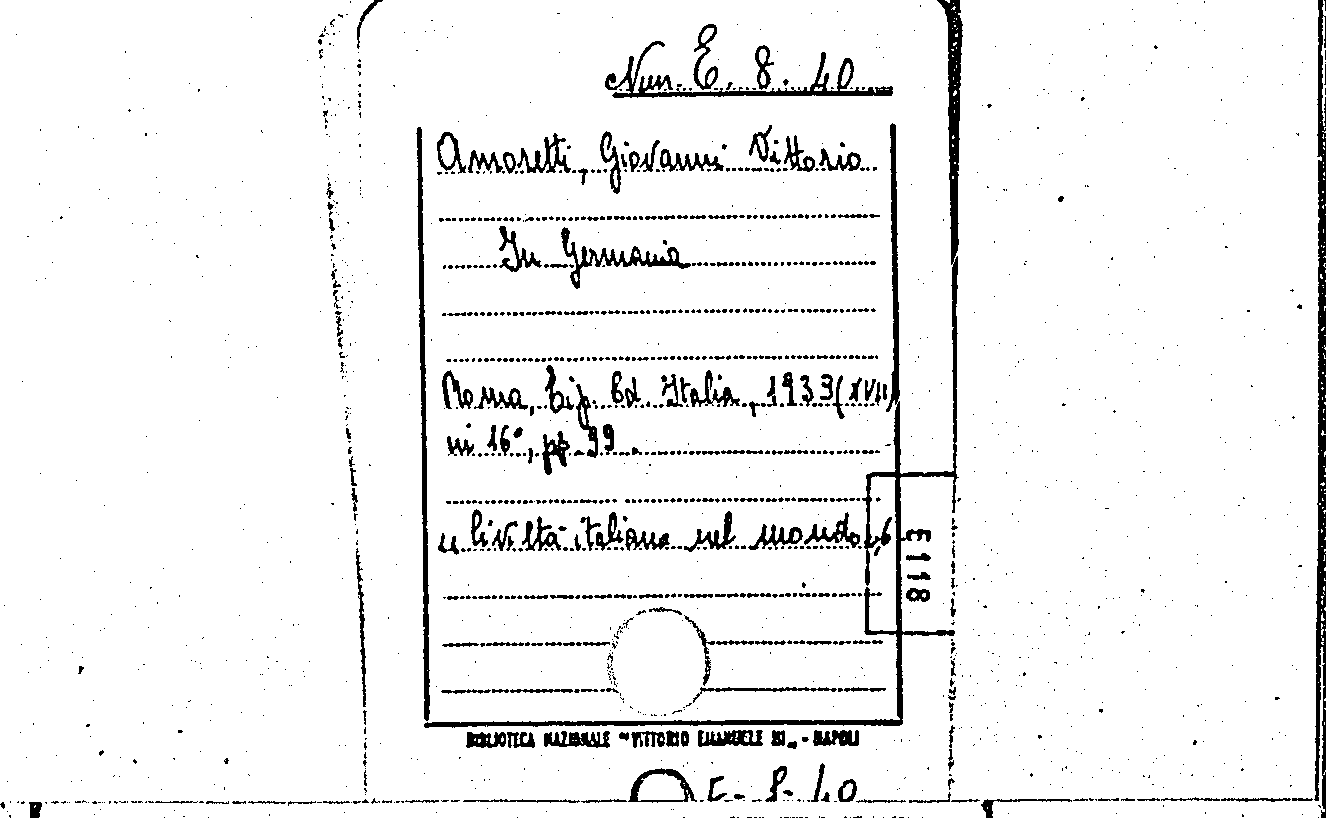 Nun. E. 8. 40
Amoretti, Giovanni Vittorio
In Germania
Roma, Tip. Ed. Italia, 1933 (XVII)
in 16°, pp. 99.
" Civiltà italiana nel mondo, 6
E 118
BIBLIOTECA NAZIONALE "VITTORIO EMANUELE III" - NAPOLI
E. 8. 40